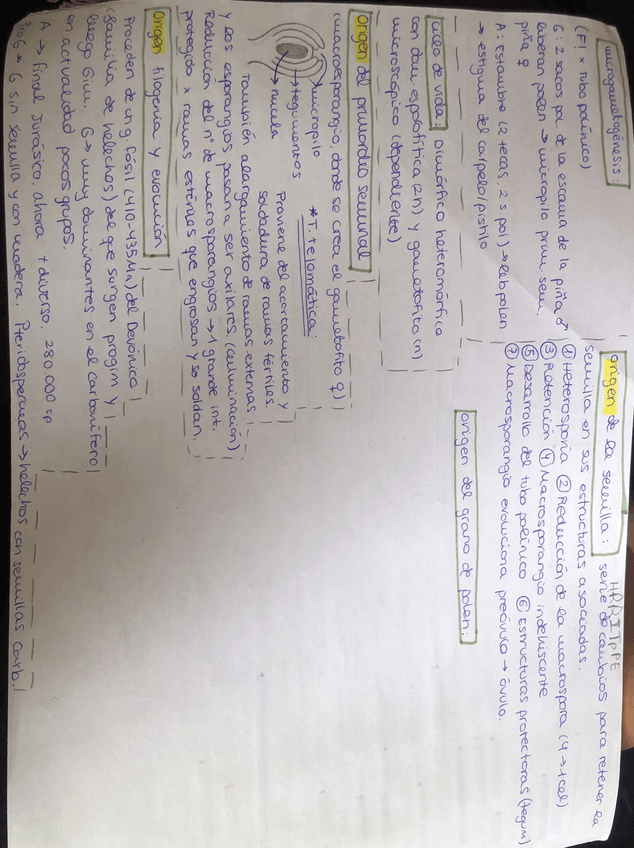 microgametogénesis:
(F1 x tubo polínico)
G: 2 sacos pol de la escama de la piña ♂
liberan polen → micropilo prim. sem.
piña ♀
A: Estambre (2 tecas, 2 s pol) → lib polen
→ estigma del carpelo/pistilo
ciclo de vida: Dimórfico heteromórfico
con dom esporofítica (2n) y gametofito (n)
microscópico (dependiente)
origen del primordio seminal
(macroesporangio, donde se crea el gametofito ♀)
micropilo
tegumentos
nucela
* T. telomática:
Proviene del acortamiento y
soldadura de ramas fértiles.
También alargamiento de ramas externas
y los esporangios pasan a ser axilares (culminación)
Reducción del nº de macrosporangios → 1 grande int.
protegido x ramas estériles que engrosan y se soldan.
Origen filogenia y evolución
Proceden de un g. fósil (410-435 Ma) del Devónico
(familia de helechos) del que surgen progim y
luego Gim. G → muy dominantes en el carbonífero
en actualidad pocos grupos.
A → final Jurásico, ahora + diverso 280 000 sp
G sin semilla y con madera. Pteridospermas → helechos con semillas carb.
HRRITPPE
origen de la semilla: serie de cambios para retener la
semilla en sus estructuras asociadas.
① Heterosporia ② Reducción de la macrospora (4 → 1 cel)
③ Retención ④ Macrosporangio indehiscente
⑤ Desarrollo del tubo polínico ⑥ Estructuras protectoras (tegum)
⑦ Macrosporangio evoluciona preóvulo → óvulo.
origen del grano de polen: